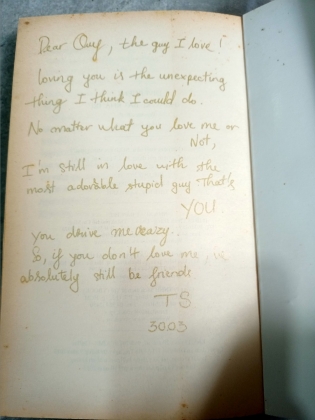 Dear Quy, the guy I love!
loving you is the unexpecting
thing I think I could do.
No matter what you love me or
Not,
I'm still in love with the
most adorable stupid guy That's
YOU
you drive me crazy..
So, if you don't love me, we
absolutely still be friends
TS
30.03